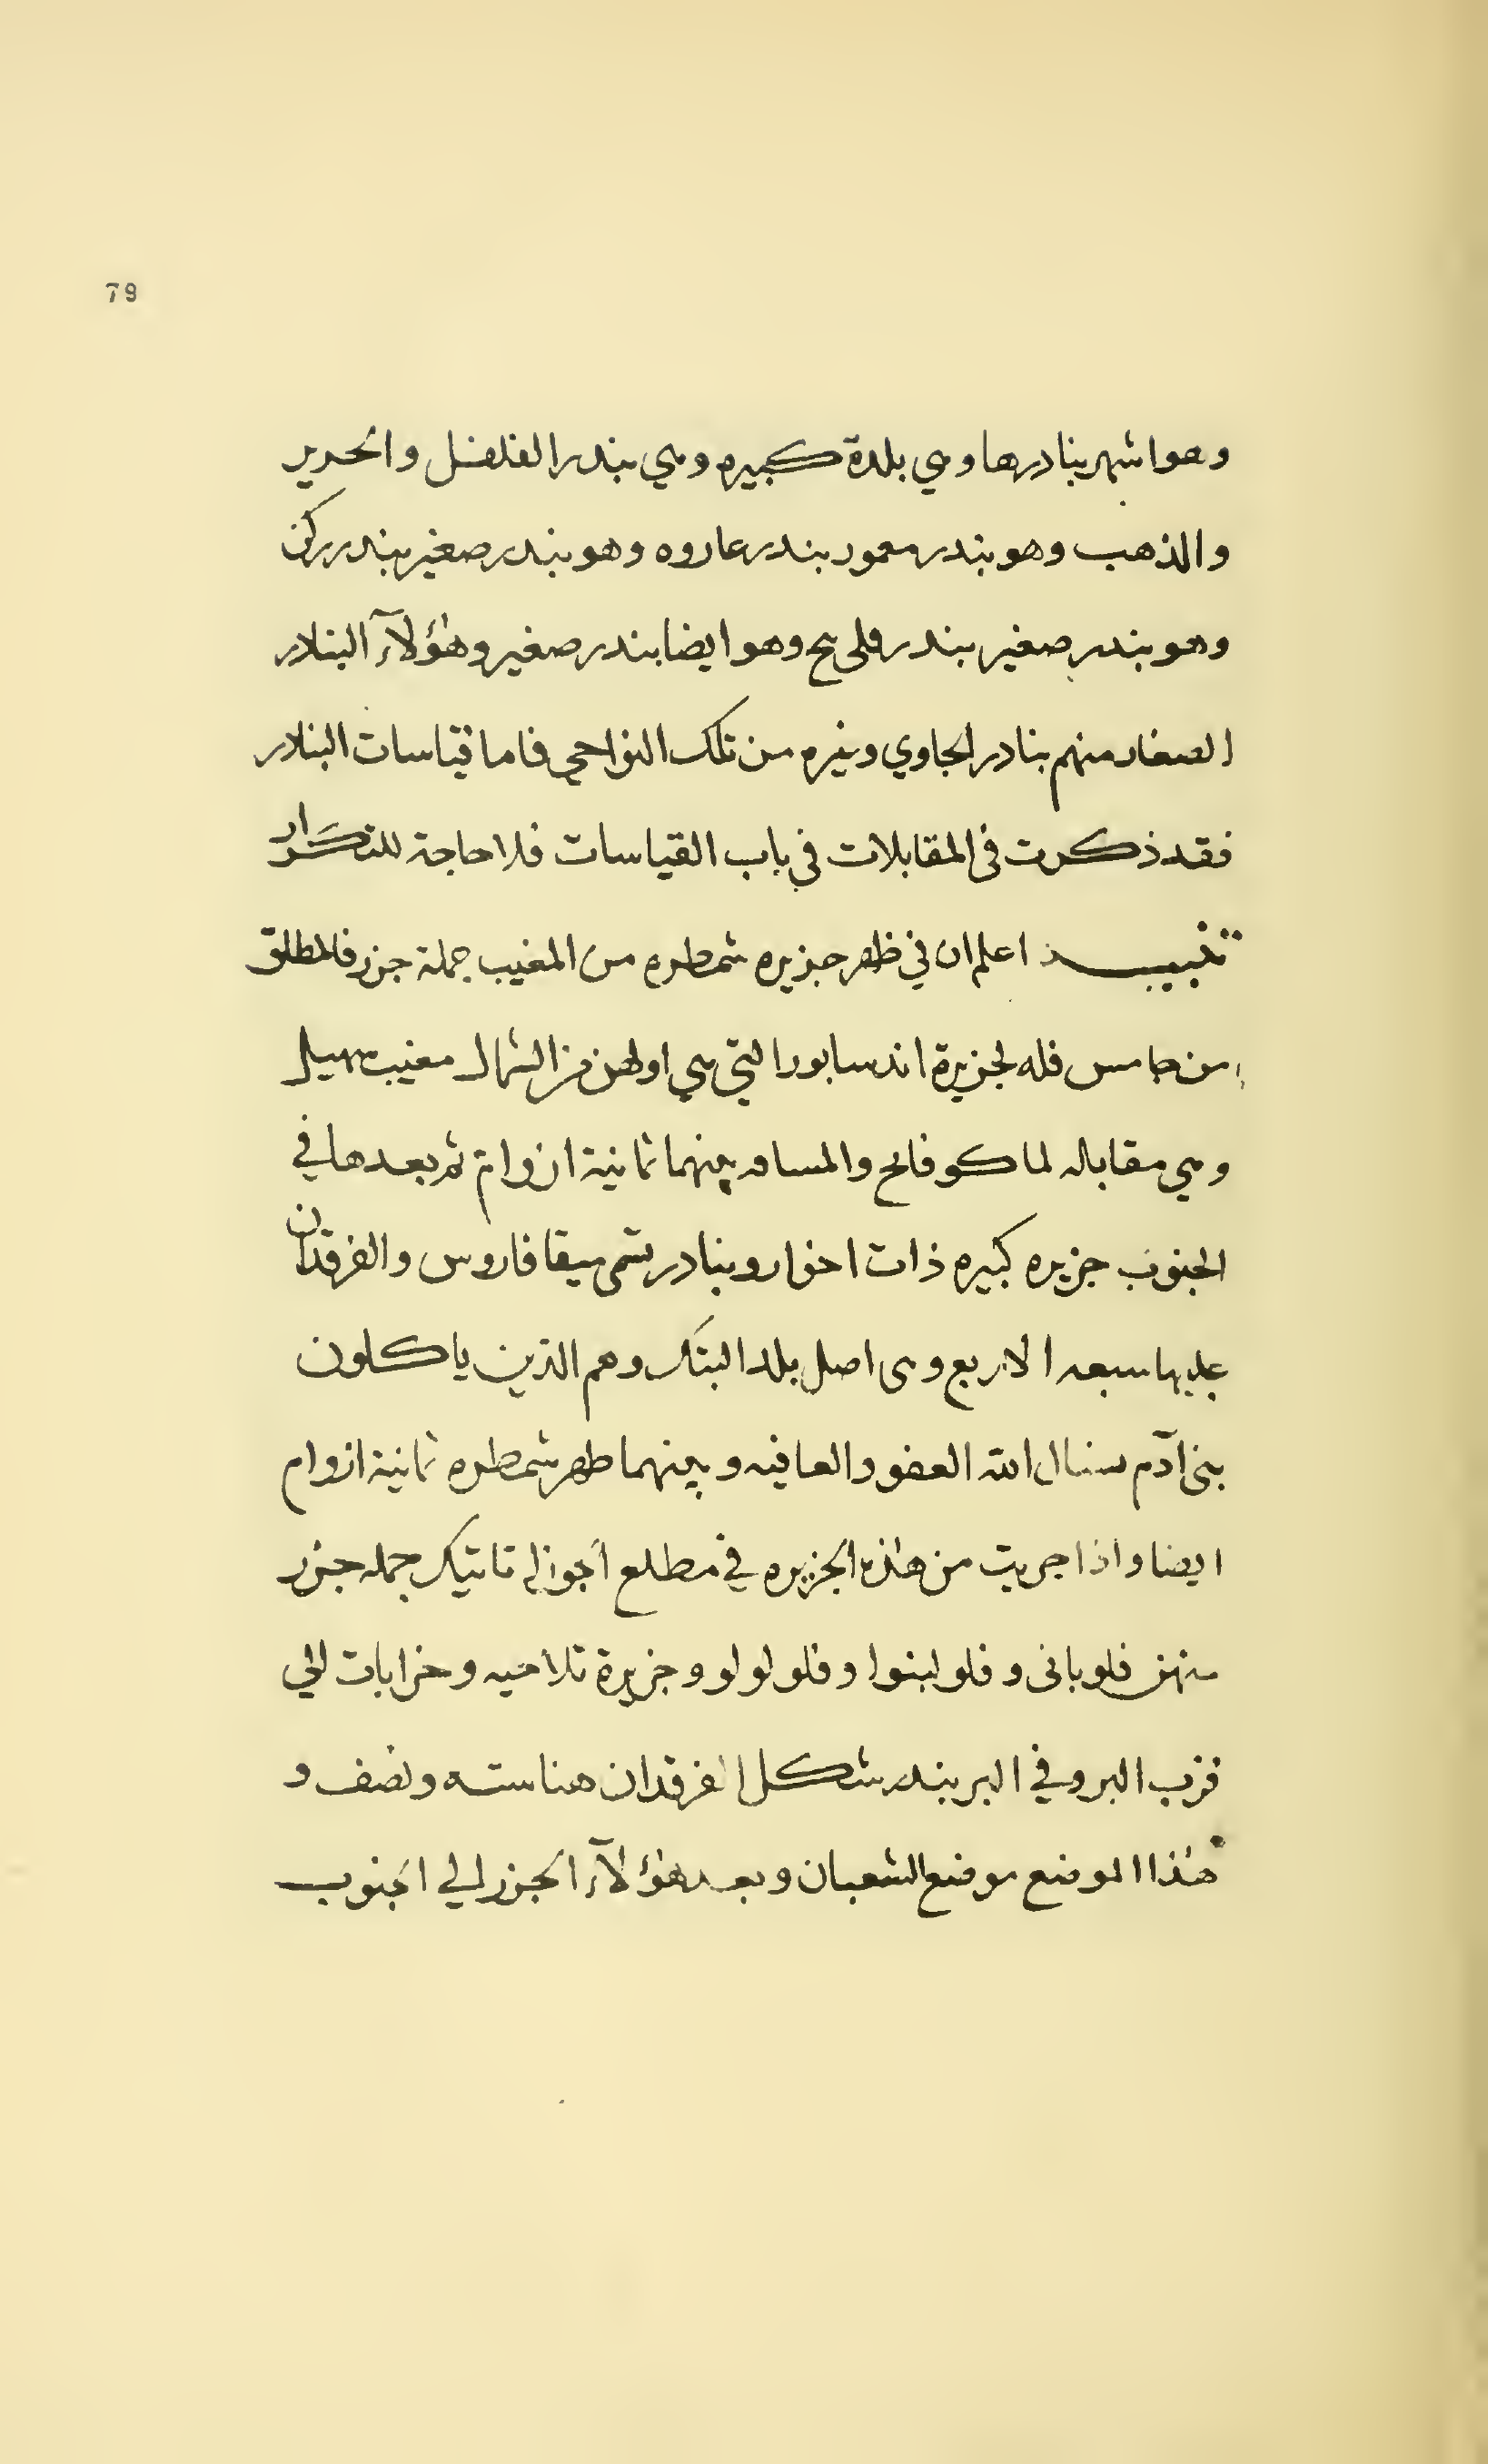 79
وهو اشهر بنادرها وهي بلدة كبيره وهي بندر الفلفل والحرير
والذهب وهو بندر معمور بندر عاروه وهو بندر صغير بندر ركن
وهو بندر صغير بندر فلى وهو ايضا بندر صغير وهؤلآء البنادر
الصغار منهم بنادر الجاوي وغيره من تلك النواحي فاما قياسات البنادر
فقد ذكرت في المقابلات في باب القياسات فلا حاجة للتكرار
تنبيه اعلم ان في ظهر جزيره شمطره من المغيب جملة جزر فالمطلق
من حامس فله لجزيرة اندسابورا التي هي اولهن من الشمال مغيب سهيل
وهي مقابله لماكوفانج والمسافه بينهما ثمانية ازوام ثم بعدها في
الجنوب جزيره كبيره ذات اخوار وبنادر تسمى ميقافاروس والفرقدان
عليها سبعه الا ربع وهى اصل بلد البتك وهم الذين ياكلون
بني آدم سنال الله العفو والعافيه وبينهما ظهر شمطره ثمانية ازوام
ايضا واذا جريت من هذه الجزيره في مطلع الجوزا تاتيك جمله جزر
منهن فلو بانى وفلو لبنوا وفلو لولو وجزيرة تلاخيه وخرابات الى
قرب البر وفي البر بندر شكل الفرقدان هنا سته ونصف و
هذا الموضع موضع الشعبان وبعد هؤلآء الجزر الي الجنوب